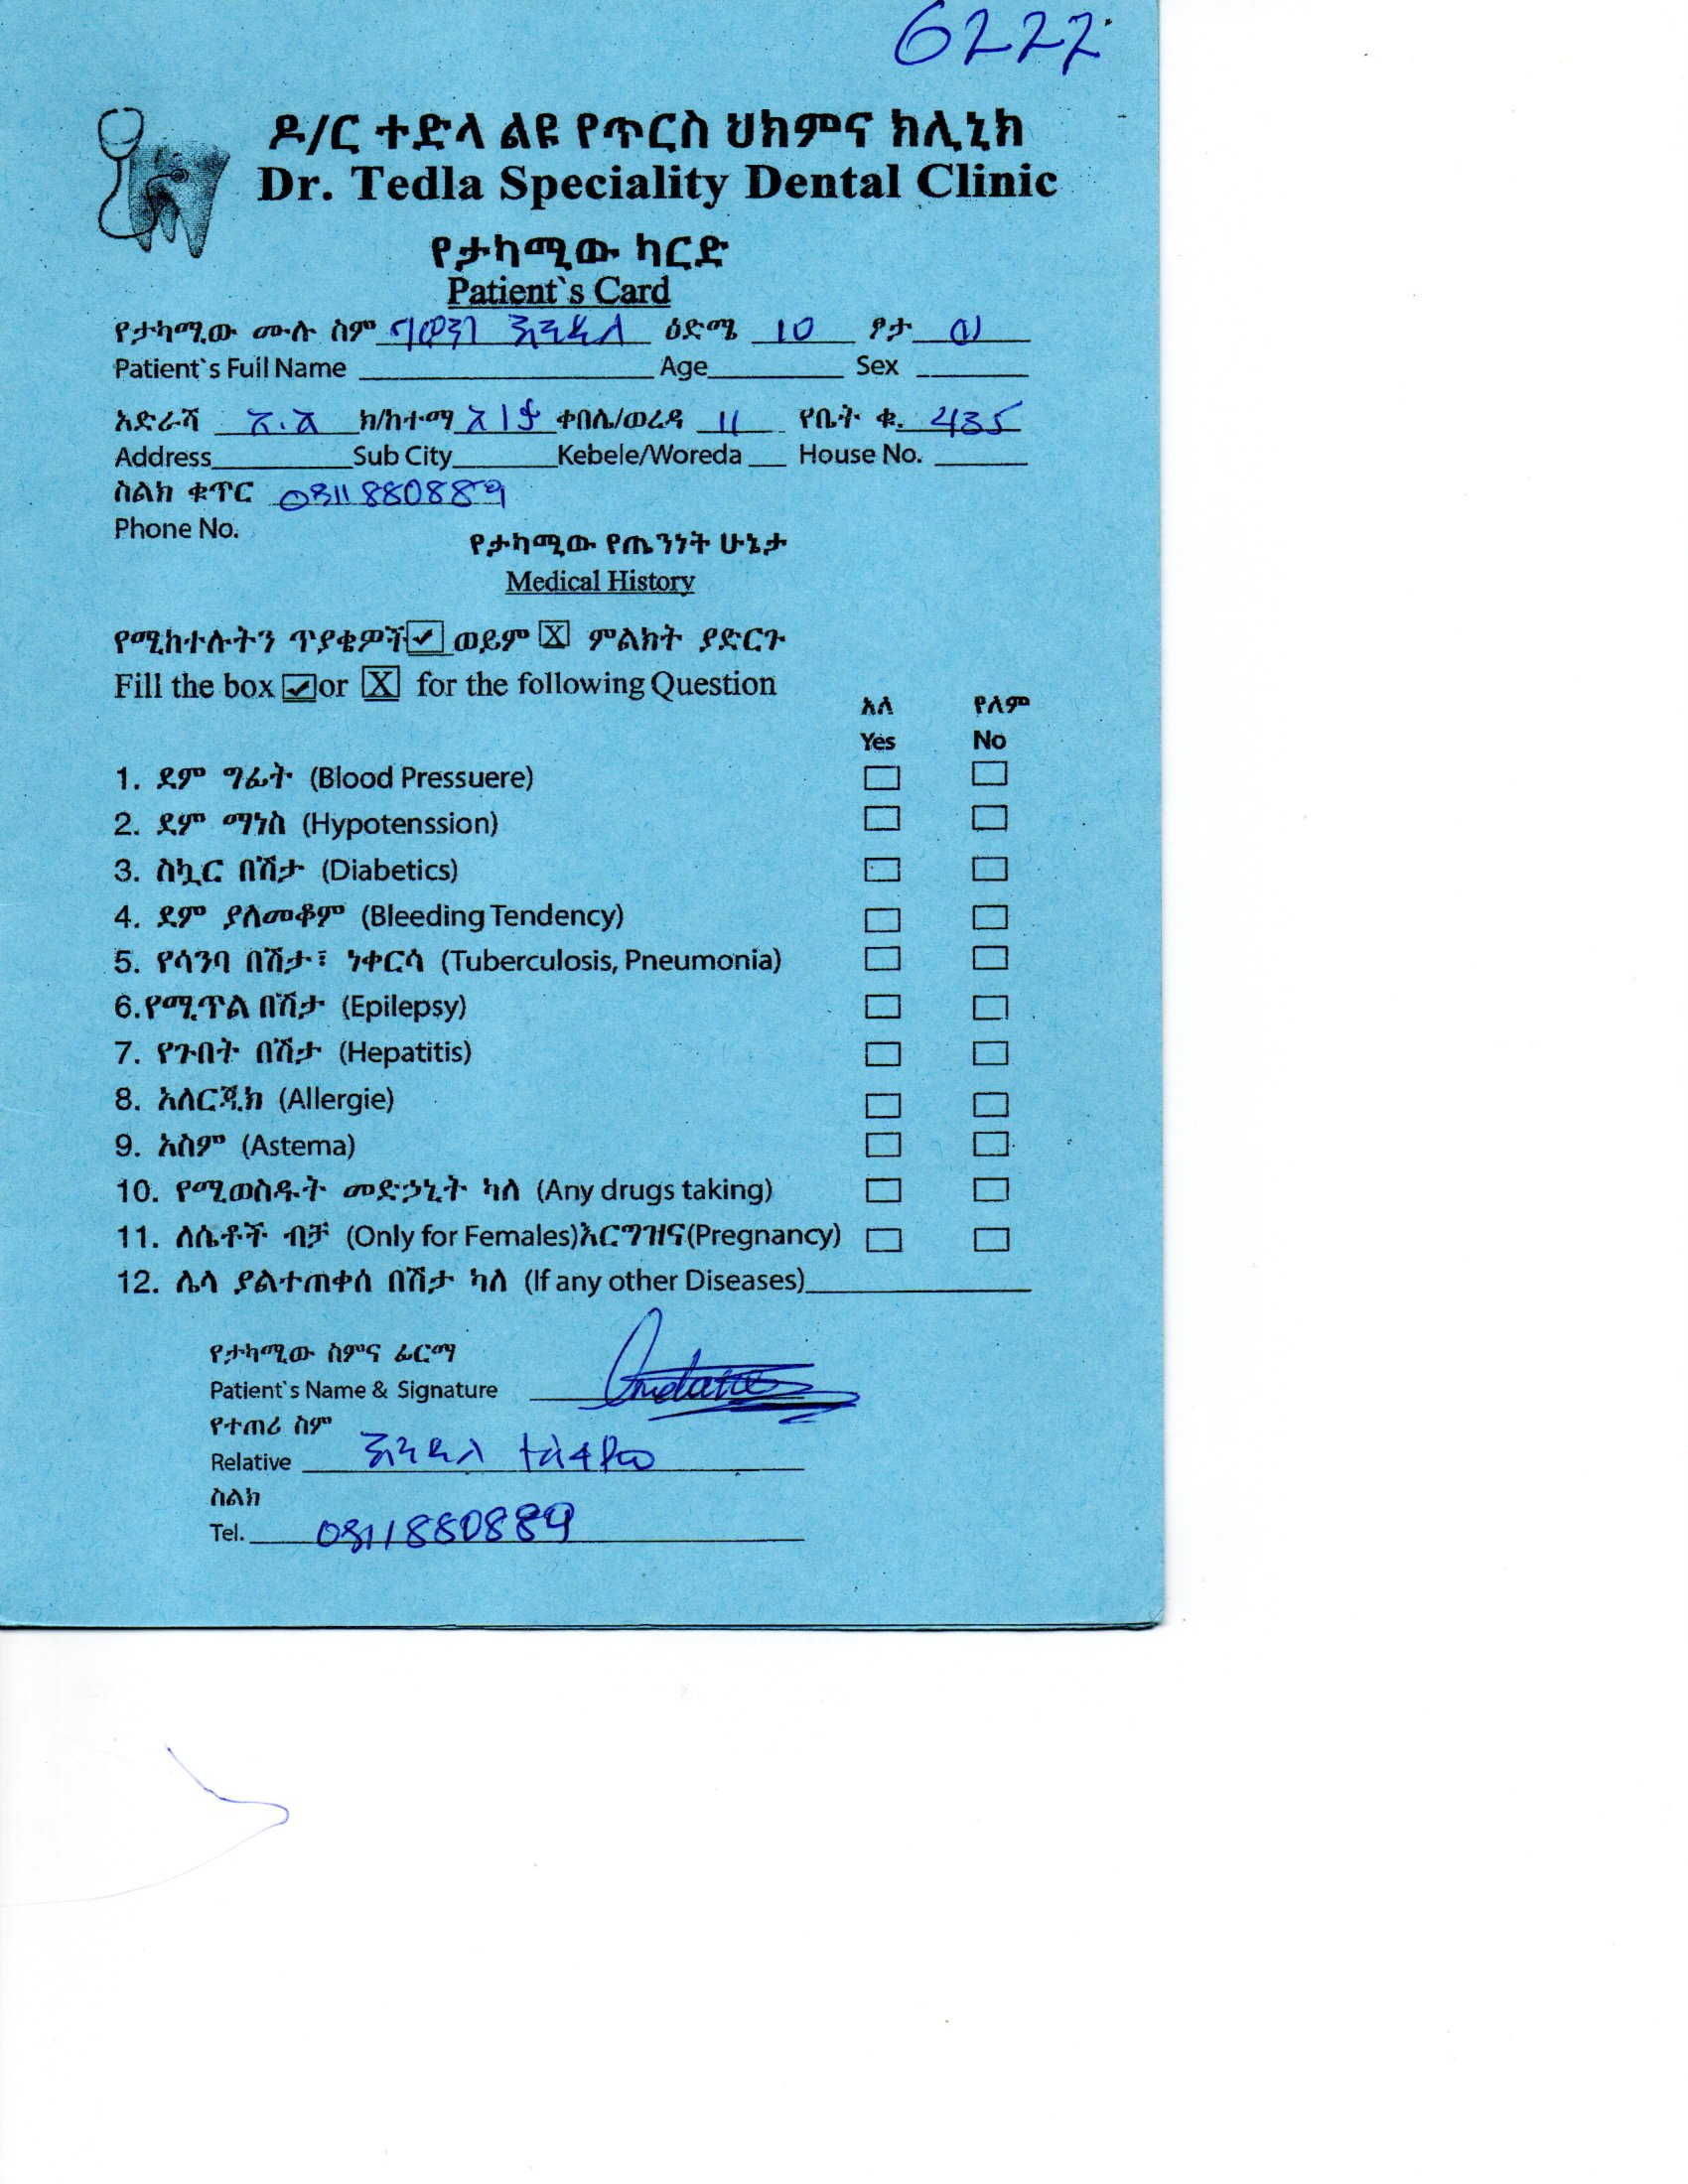 6222
ዶ/ር ተድላ ልዩ የጥርስ ህክምና ክሊኒክ
Dr. Tedla Speciality Dental Clinic
የታካሚው ካርድ
Patient`s Card
የታካሚው ሙሉ ስም እንዳለ ዕድሜ 10 ፆታ
Patient`s Full Name Age Sex
አድራሻ አ.አ ክ/ከተማ ቀበሌ/ወረዳ 11 የቤት ቁ. 435
Address Sub City Kebele/Woreda House No.
ስልክ ቁጥር 0911880889
Phone No.
የታካሚው የጤንነት ሁኔታ
Medical History
የሚከተሉትን ጥያቄዎች ወይም X ምልክት ያድርጉ
Fill the box or X for the following Question
አለ የለም
Yes No
1. ደም ግፊት (Blood Pressuere)
2. ደም ማነስ (Hypotenssion)
3. ስኳር በሽታ (Diabetics)
4. ደም ያለመቆም (Bleeding Tendency)
5. የሳንባ በሽታ፣ ነቀርሳ (Tuberculosis, Pneumonia)
6.የሚጥል በሽታ (Epilepsy)
7. የጉበት በሽታ (Hepatitis)
8. አለርጂክ (Allergie)
9. አስም (Astema)
10. የሚወስዱት መድኃኒት ካለ (Any drugs taking)
11. ለሴቶች ብቻ (Only for Females)እርግዝና(Pregnancy)
12. ሌላ ያልተጠቀሰ በሽታ ካለ (If any other Diseases)
የታካሚው ስምና ፊርማ
Patient`s Name & Signature
የተጠሪ ስም
Relative እንዳለ
ስልክ
Tel. 0911880889